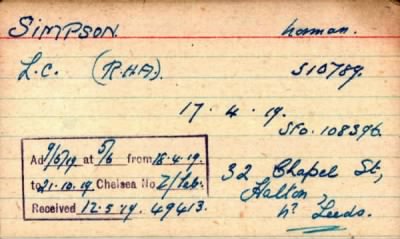 SIMPSON. Norman.
L.C. (R.H.A.) 510789.
17. 4. 19.
S/No. 108396.
Ad 9/5/19 at 5/6 from 18.4.19.
to 21.10.19 Chelsea No. 2/
Received 12.5.19. 49413.
32 Chapel St,
Halton,
Nr Leeds.